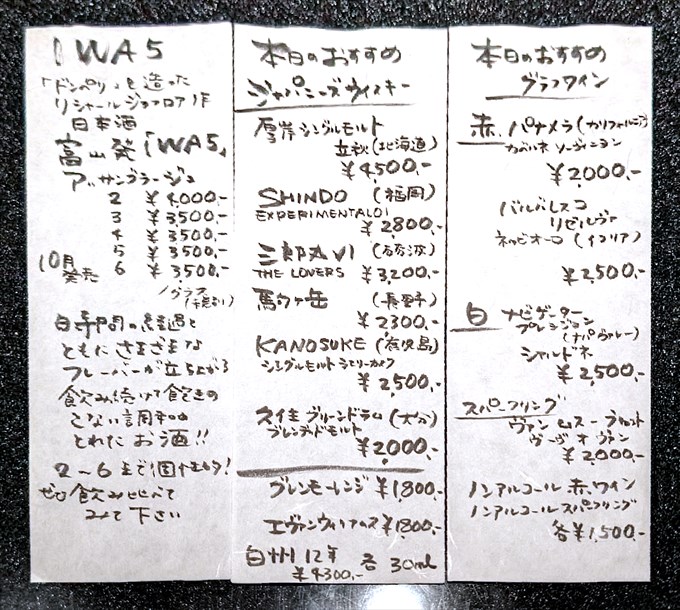 IWA5
「ドンペリ」を造った
リシャール ジョフロア 作
日本酒
富山発「IWA5」
アッサンブラージュ
2 ¥4,000-
3 ¥3,500-
4 ¥3,500-
5 ¥3,500-
10月発売 6 ¥3,500-
/グラス
時間の経過と
ともに さまざまな
フレーバーが立ち上がる
飲み続けて飽きの
こない調和の
とれたお酒!!
2〜6まで個性あり!
ぜひ飲み比べて
みて下さい
本日のおすすめ
ジャパニーズウイスキー
厚岸シングルモルト
立秋(北海道)
¥4,500-
SHINDO (福岡)
EXPERIMENTAL01
¥2800-
三郎丸VI (砺波)
THE LOVERS ¥3,200-
馬ウァ缶 (長野)
¥2300-
KANOSUKE (鹿児島)
シングルモルト シェリーカスク
¥2,500-
久住 グリーンドラム (大分)
ブレンデッドモルト
¥2,000-
グレンモーレンジ ¥1,800-
エヴァンウィリアムス ¥1,800-
白州12年 各30ml
¥4300-
本日のおすすめ
グラスワイン
赤 パナメラ(カリフォルニア)
カベルネ ソーヴィニヨン
¥2,000-
バルバレスコ
リゼルヴァ
ネッビオーロ (イタリア)
¥2,500-
白 ナビゲーター
プレシジョン
(ナパヴァレー)
シャルドネ
¥2,500-
スパークリング
ヴァン ムスー
¥2,000-
ノンアルコール 赤ワイン
ノンアルコール スパークリング
各¥1,500-